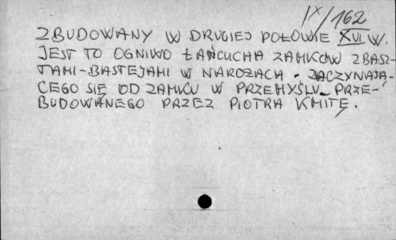 IX/162
ZBUDOWANY W DRUGIEJ POŁOWIE XVI W.
JEST TO OGNIWO ŁAŃCUCHA ZAMKÓW Z BASZ-
TAMI-BASTEJAMI W NAROŻACH. ZACZYNAJĄ-
CEGO SIĘ OD ZAMKU W PRZEMYŚLU PRZE-
BUDOWANEGO PRZEZ PIOTRA KMITĘ.